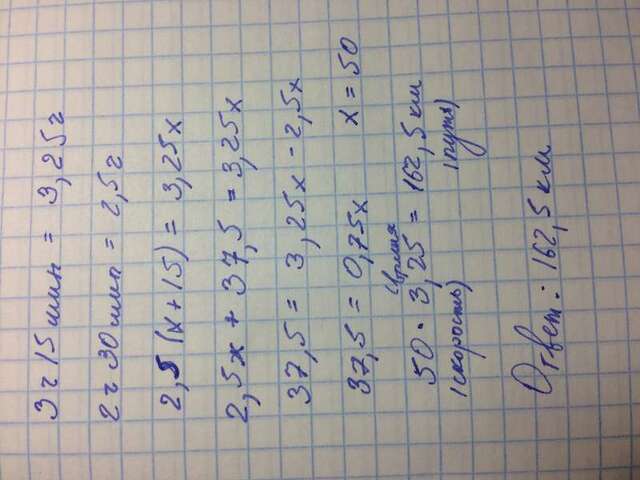 3 ч 15 мин = 3,25 ч
2 ч 30 мин = 2,5 ч
2,5 (x + 15) = 3,25x
2,5x + 37,5 = 3,25x
37,5 = 3,25x - 2,5x
37,5 = 0,75x x = 50
(время
50 · 3,25 = 162,5 км
(скорость) (путь)
Ответ: 162,5 км